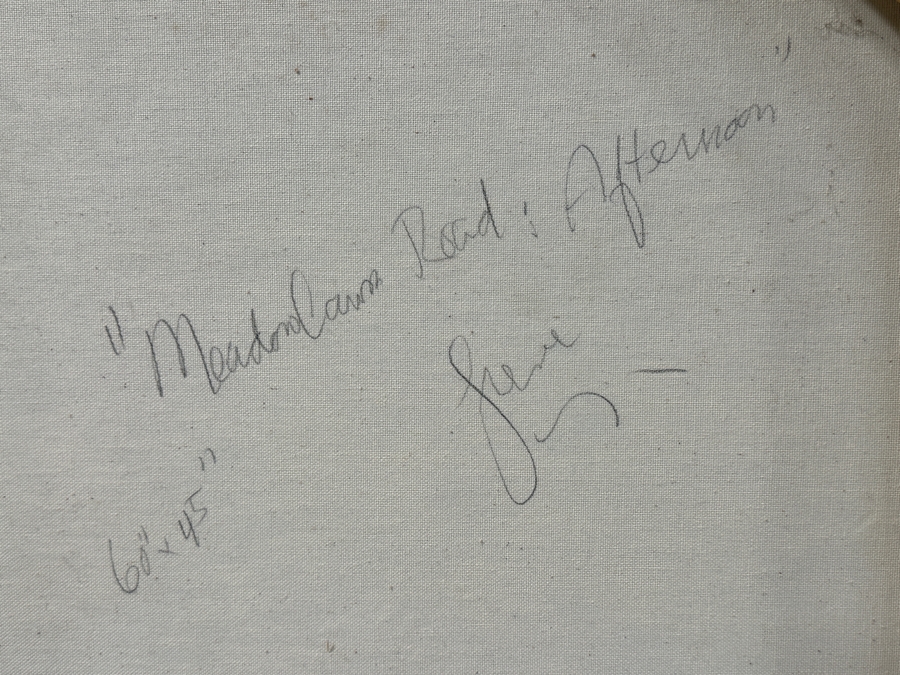 "Meadowlawn Road: Afternoon"
60" x 45"